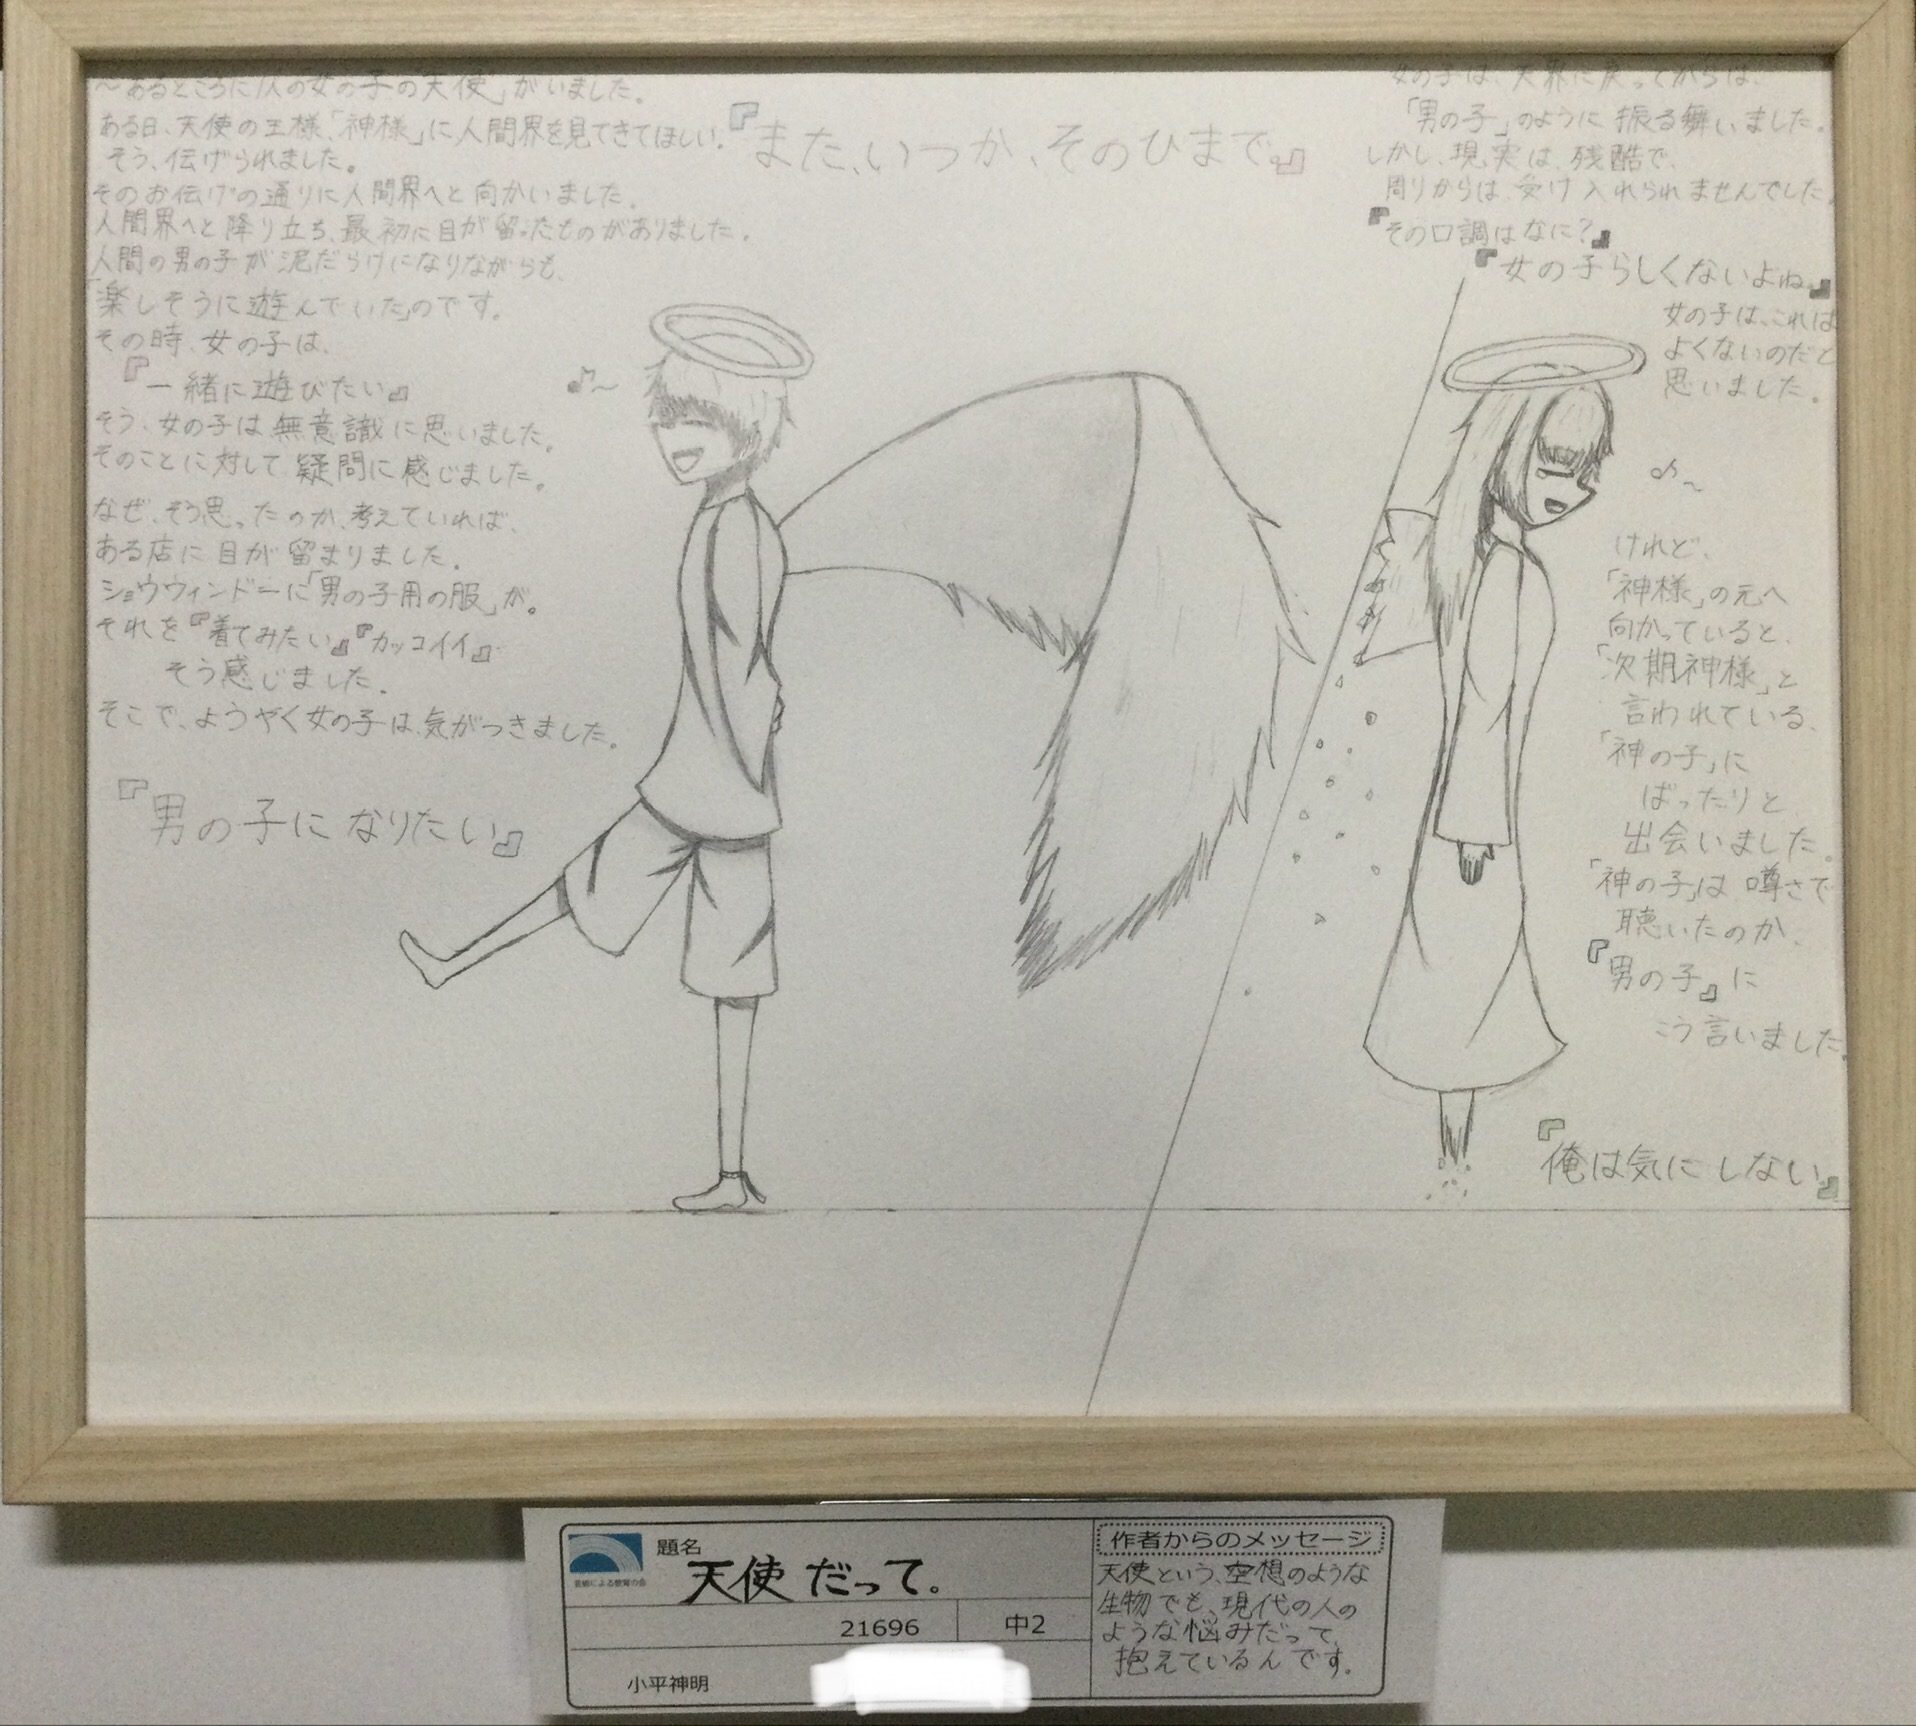 ～あるところに1人の女の子の「天使」がいました。
ある日、天使の王様、「神様」に人間界を見てきてほしい。
そう、伝げられました。
そのお伝げの通りに人間界へと向かいました。
人間界へと降り立ち、最初に目が留ったものがありました。
人間の男の子が泥だらけになりながらも、
「楽しそうに遊んでいた」のです。
その時、女の子は、
『一緒に遊びたい』
そう、女の子は無意識に思いました。
そのことに対して疑問に感じました。
なぜ、そう思ったのか、考えていれば、
ある店に目が留まりました。
ショウウィンドーに「男の子用の服」が。
それを『着てみたい』『カッコイイ』
そう感じました。
そこで、ようやく女の子は、気がつきました。
『男の子になりたい』
『また、いつか、そのひまで。』
女の子は、天界に戻ってからは、
「男の子」のように振る舞いました。
しかし、現実は、残酷で、
周りからは、受け入れられませんでした。
『その口調はなに?』
『女の子らしくないよね。』
女の子は、これは
よくないのだと
思いました。
けれど、
「神様」の元へ
向かっていると、
「次期神様」と
言われている、
「神の子」に
ばったりと
出会いました。
「神の子」は噂さで
聴いたのか、
『男の子』に
こう言いました。
『俺は気にしない』
芸術による教育の会
題名
天使だって。
21696
中2
小平神明
作者からのメッセージ
天使という、空想のような
生物でも、現代の人の
ような悩みだって、
抱えているんです。